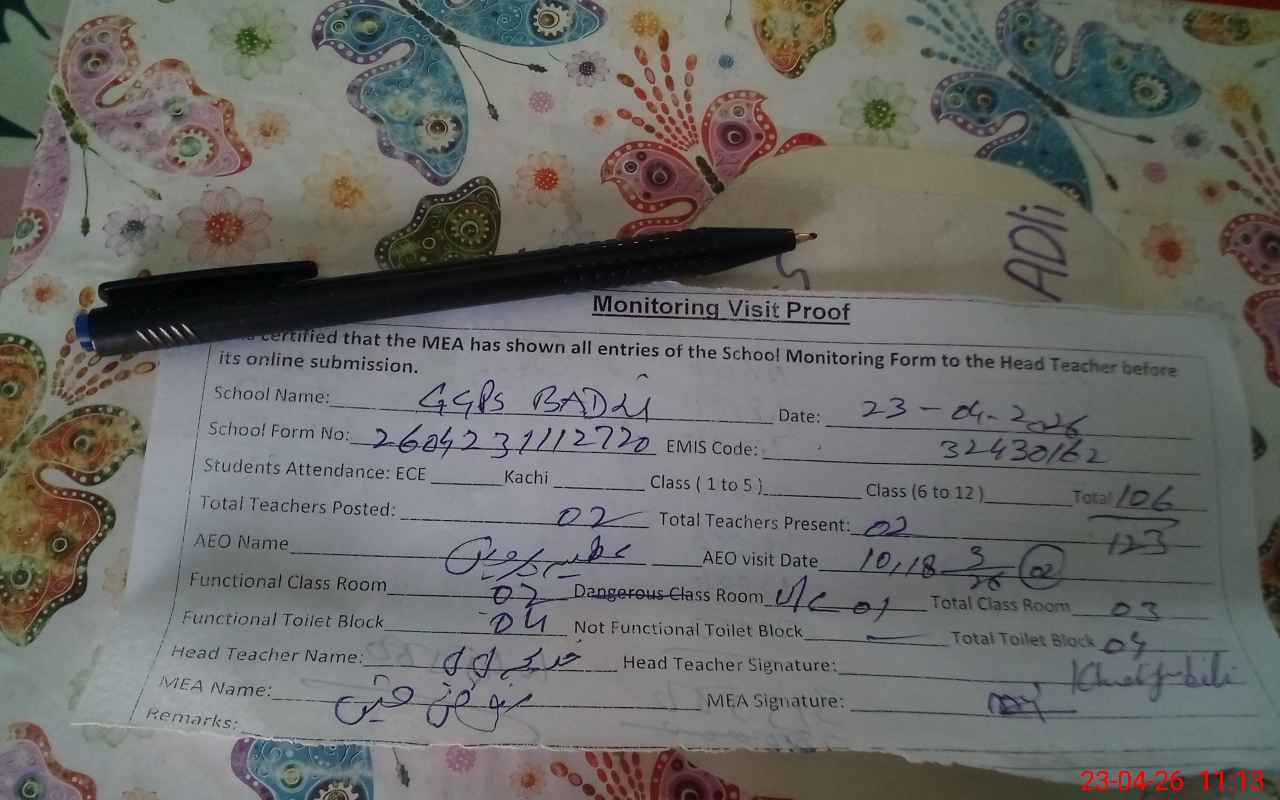 ADli
Monitoring Visit Proof
certified that the MEA has shown all entries of the School Monitoring Form to the Head Teacher before
its online submission.
School Name: GGPS BADLI Date: 23-04-2026
School Form No: 2604231112720 EMIS Code: 32430162
Students Attendance: ECE Kachi Class ( 1 to 5 ) Class (6 to 12 ) Total 106
123
Total Teachers Posted: 02 Total Teachers Present: 02
AEO Name AEO visit Date 10,18 3/26 02
Functional Class Room 02 Dangerous Class Room U/C 01 Total Class Room 03
Functional Toilet Block 04 Not Functional Toilet Block Total Toilet Block 04
Head Teacher Name: Head Teacher Signature:
MEA Name: MEA Signature:
Remarks:
23-04-26 11:13